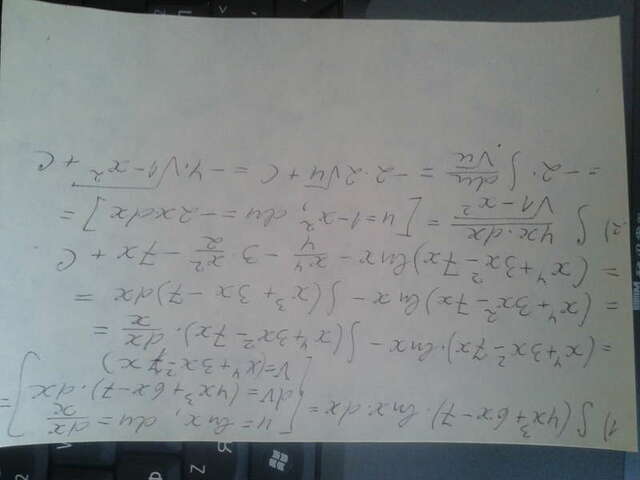 1) ∫(4x³+6x-7)·lnx·dx = [u=lnx, du=dx/x
dv=(4x³+6x-7)·dx
v=(x⁴+3x²-7x)] =
= (x⁴+3x²-7x)·lnx - ∫(x⁴+3x²-7x)·dx/x =
= (x⁴+3x²-7x)lnx - ∫(x³+3x-7)dx =
= (x⁴+3x²-7x)lnx - x⁴/4 - 3·x²/2 - 7x + C
2) ∫ 4x·dx/√(1-x²) = [u=1-x², du=-2xdx] =
= -2·∫ du/√u = -2·2√u + C = -4·√(1-x²) + C